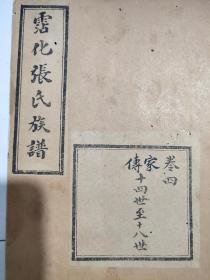 霑化張氏族譜
卷四
家傳
十四世至十八世